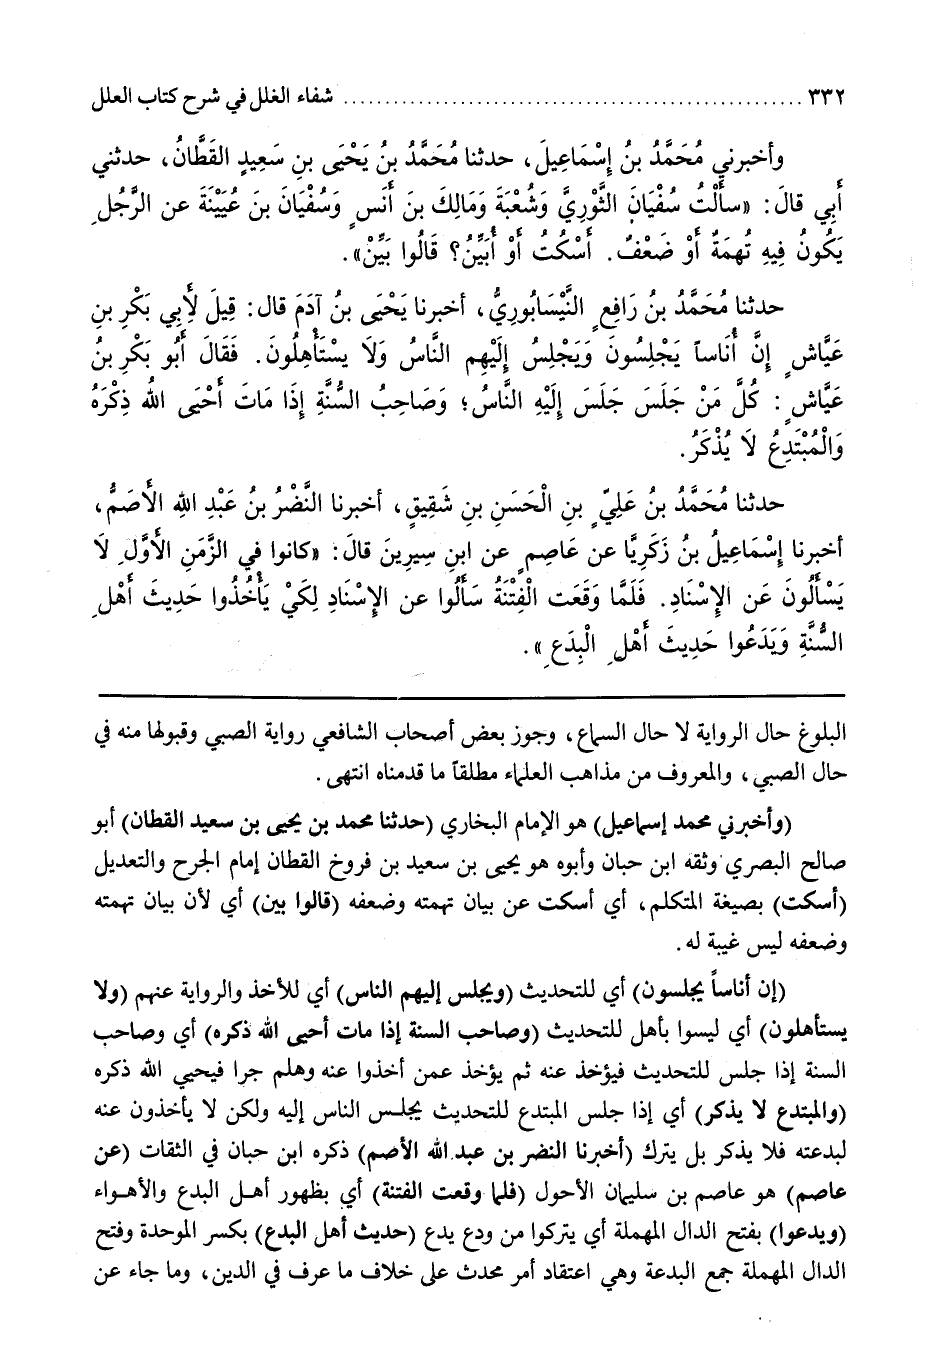 ٣٣٢ ........................................ شفاء الغلل في شرح كتاب العلل
وأخبرني مُحَمَّدُ بنُ إِسْمَاعِيلَ، حدثنا مُحَمَّدُ بنُ يَحْيَى بنِ سَعِيدٍ القَطَّانُ، حدثني
أَبِي قالَ: «سأَلْتُ سُفْيَانَ الثَّوْرِيَّ وَشُعْبَةَ وَمَالِكَ بنَ أَنَسٍ وَسُفْيَانَ بنَ عُيَيْنَةَ عن الرَّجُلِ
يَكُونُ فِيهِ تُهمَةٌ أَوْ ضَعْفٌ. أَسْكُتُ أَوْ أُبَيِّنُ؟ قَالُوا بَيِّنْ».
حدثنا مُحَمَّدُ بنُ رَافِعٍ النَّيْسَابُورِيُّ، أخبرنا يَحْيَى بنُ آدَمَ قال: قِيلَ لِأَبِي بَكْرِ بنِ
عَيَّاشٍ إِنَّ أُنَاساً يَجْلِسُونَ وَيَجْلِسُ إِلَيْهِم النَّاسُ وَلَا يسْتَأْهِلُونَ. فَقَالَ أَبُو بَكْرِ بنُ
عَيَّاشٍ: كُلُّ مَنْ جَلَسَ جَلَسَ إِلَيْهِ النَّاسُ؛ وَصَاحِبُ السُّنَّةِ إِذَا مَاتَ أَحْيَى اللهُ ذِكْرَهُ
وَالْمُبْتَدِعُ لَا يُذْكَرُ.
حدثنا مُحَمَّدُ بنُ عَلِيِّ بنِ الْحَسَنِ بنِ شَقِيقٍ، أخبرنا النَّضْرُ بنُ عَبْدِ اللهِ الأَصَمُّ،
أخبرنا إِسْمَاعِيلُ بنُ زَكَرِيَّا عن عَاصِمٍ عن ابنِ سِيرِينَ قالَ: «كانوا في الزَّمَنِ الأوَّلِ لَا
يَسْأَلُونَ عَن الإِسْنَادِ. فَلَمَّا وَقَعَت الْفِتْنَةُ سَأَلُوا عن الإِسْنَادِ لِكَيْ يَأْخُذُوا حَدِيثَ أَهْلِ
السُّنَّةِ وَيَدَعُوا حَدِيثَ أَهْلِ الْبِدَعِ».
البلوغ حال الرواية لا حال السماع، وجوز بعض أصحاب الشافعي رواية الصبي وقبولها منه في
حال الصبي، والمعروف من مذاهب العلماء مطلقاً ما قدمناه انتهى.
(وأخبرني محمد إسماعيل) هو الإمام البخاري (حدثنا محمد بن يحيى بن سعيد القطان) أبو
صالح البصري وثقه ابن حبان وأبوه هو يحيى بن سعيد بن فروخ القطان إمام الجرح والتعديل
(أسكت) بصيغة المتكلم، أي أسكت عن بيان تهمته وضعفه (قالوا بين) أي لأن بيان تهمته
وضعفه ليس غيبة له.
(إن أناساً يجلسون) أي للتحديث (ويجلس إليهم الناس) أي للأخذ والرواية عنهم (ولا
يستأهلون) أي ليسوا بأهل للتحديث (وصاحب السنة إذا مات أحيى الله ذكره) أي وصاحب
السنة إذا جلس للتحديث فيؤخذ عنه ثم يؤخذ عمن أخذوا عنه وهلم جرا فيحيي الله ذكره
(والمبتدع لا يذكر) أي إذا جلس المبتدع للتحديث يجلس الناس إليه ولكن لا يأخذون عنه
لبدعته فلا يذكر بل يترك (أخبرنا النضر بن عبد الله الأصم) ذكره ابن حبان في الثقات (عن
عاصم) هو عاصم بن سليمان الأحول (فلما وقعت الفتنة) أي بظهور أهل البدع والأهواء
(ويدعوا) بفتح الدال المهملة أي يتركوا من ودع يدع (حديث أهل البدع) بكسر الموحدة وفتح
الدال المهملة جمع البدعة وهي اعتقاد أمر محدث على خلاف ما عرف في الدين، وما جاء عن